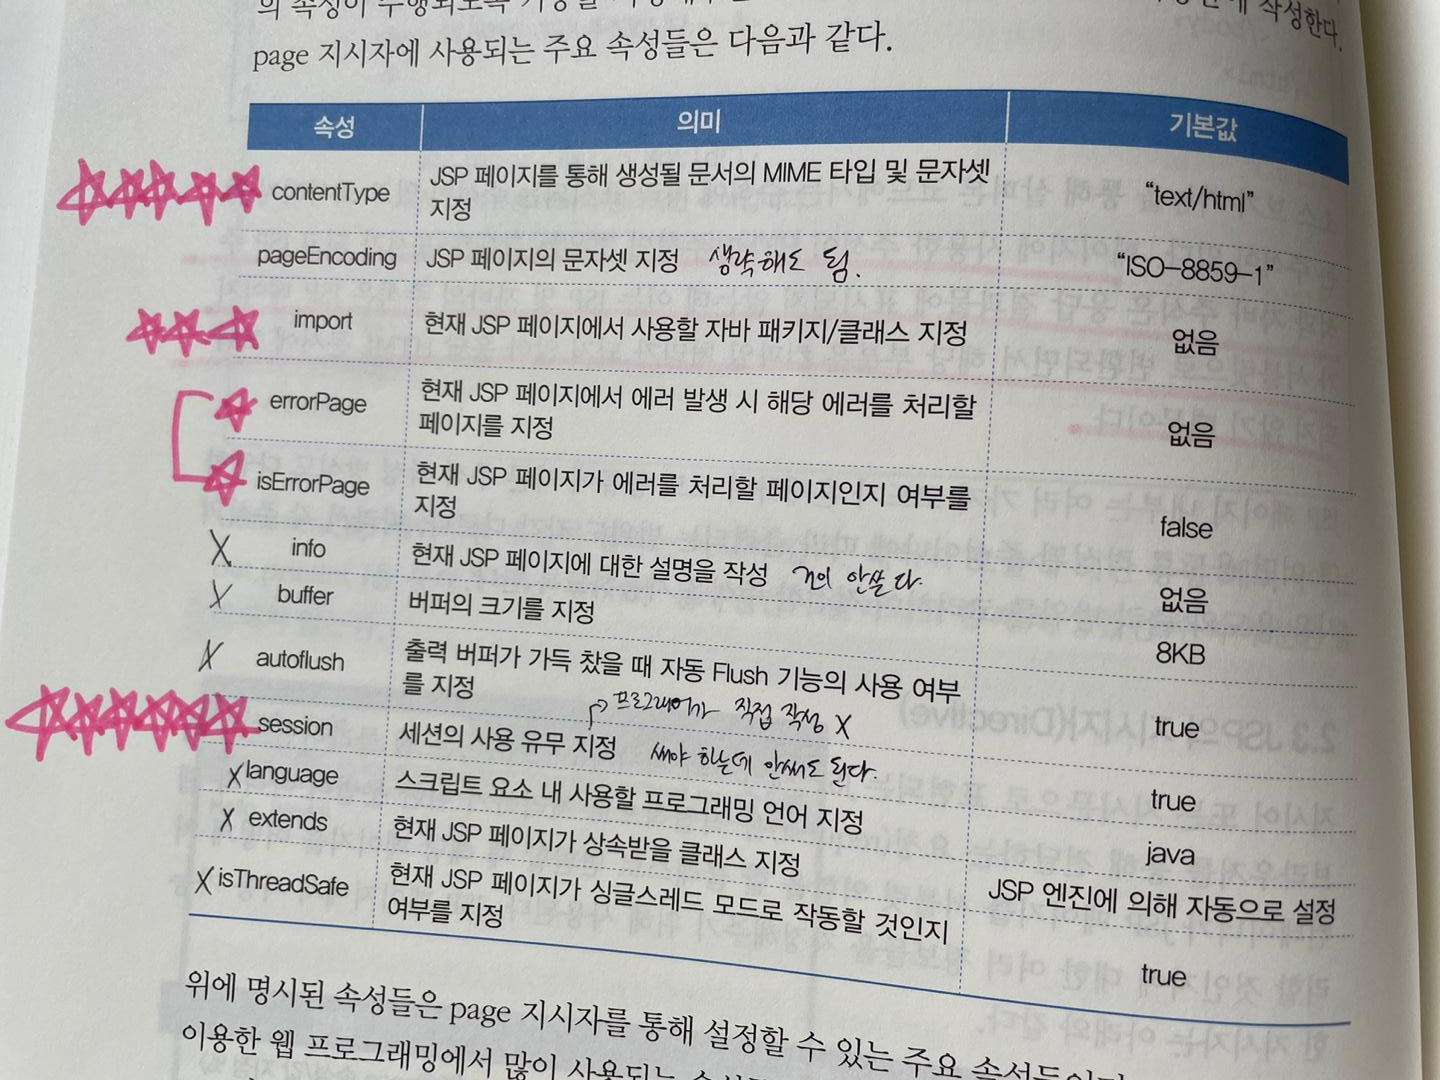 page 지시자에 사용되는 주요 속성들은 다음과 같다.
속성 의미 기본값
contentType JSP 페이지를 통해 생성될 문서의 MIME 타입 및 문자셋 “text/html”
지정
pageEncoding JSP 페이지의 문자셋 지정 생략해도 됨. “ISO-8859-1”
import 현재 JSP 페이지에서 사용할 자바 패키지/클래스 지정 없음
errorPage 현재 JSP 페이지에서 에러 발생 시 해당 에러를 처리할 없음
페이지를 지정
isErrorPage 현재 JSP 페이지가 에러를 처리할 페이지인지 여부를 false
지정
X info 현재 JSP 페이지에 대한 설명을 작성 거의 안쓴다. 없음
X buffer 버퍼의 크기를 지정 8KB
X autoflush 출력 버퍼가 가득 찼을 때 자동 Flush 기능의 사용 여부 true
를 지정
프로그래머가 직접 작성 X
session 세션의 사용 유무 지정 써야 하는데 안써도 된다. true
X language 스크립트 요소 내 사용할 프로그래밍 언어 지정 java
X extends 현재 JSP 페이지가 상속받을 클래스 지정 JSP 엔진에 의해 자동으로 설정
X isThreadSafe 현재 JSP 페이지가 싱글스레드 모드로 작동할 것인지 true
여부를 지정
위에 명시된 속성들은 page 지시자를 통해 설정할 수 있는 주요 속성들이다
이용한 웹 프로그래밍에서 많이 사용되는